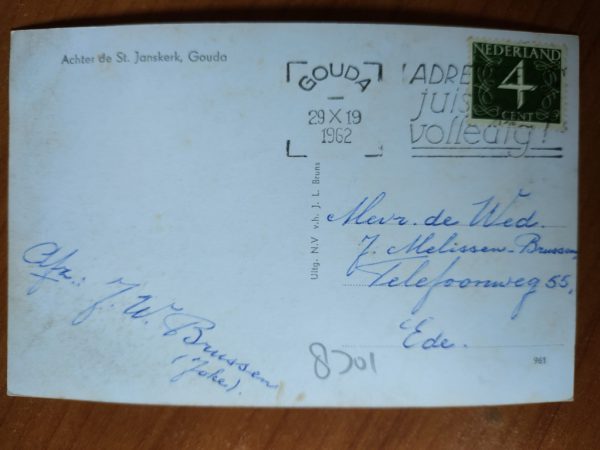 Achter de St. Janskerk, Gouda
GOUDA
29 X 19
1962
ADRE
juis
volledig!
NEDERLAND
4
CENT
Uitg. N.V v.h. J. L. Bruns
Mevr. de Wed.
J. Melissen-Brussen
Telefoonweg 55,
Ede.
Afz.: J. W. Brussen
(Joke).
961